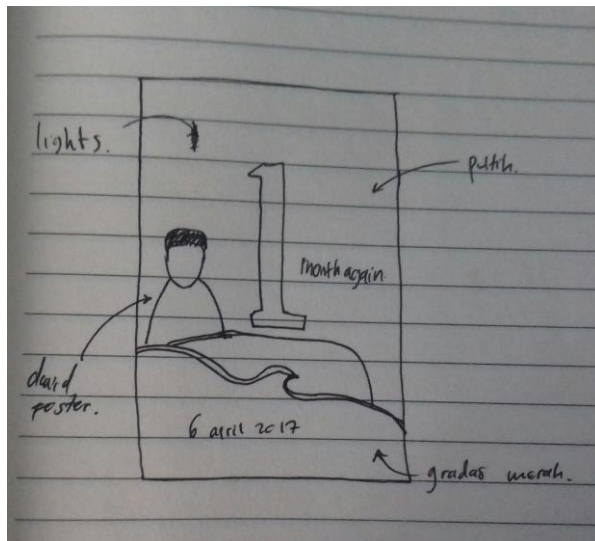 lights.
putih.
1
month again
david
foster.
6 april 2017
gradasi merah.